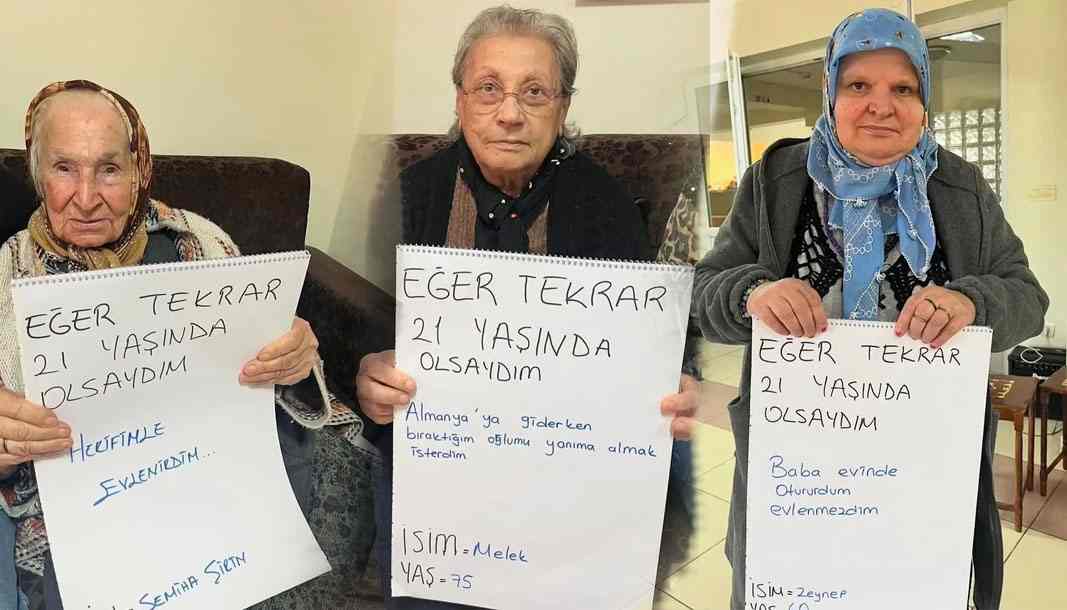 EĞER TEKRAR
21 YAŞINDA
OLSAYDIM
HERİFİMLE
EVLENİRDİM...
SEMİHA ŞİRİN
EĞER TEKRAR
21 YAŞINDA
OLSAYDIM
Almanya'ya giderken
bıraktığım oğlumu yanıma almak
isterdim
İSİM = Melek
YAŞ = 75
EĞER TEKRAR
21 YAŞINDA
OLSAYDIM
Baba evinde
Otururdum
evlenmezdim
İSİM = Zeynep